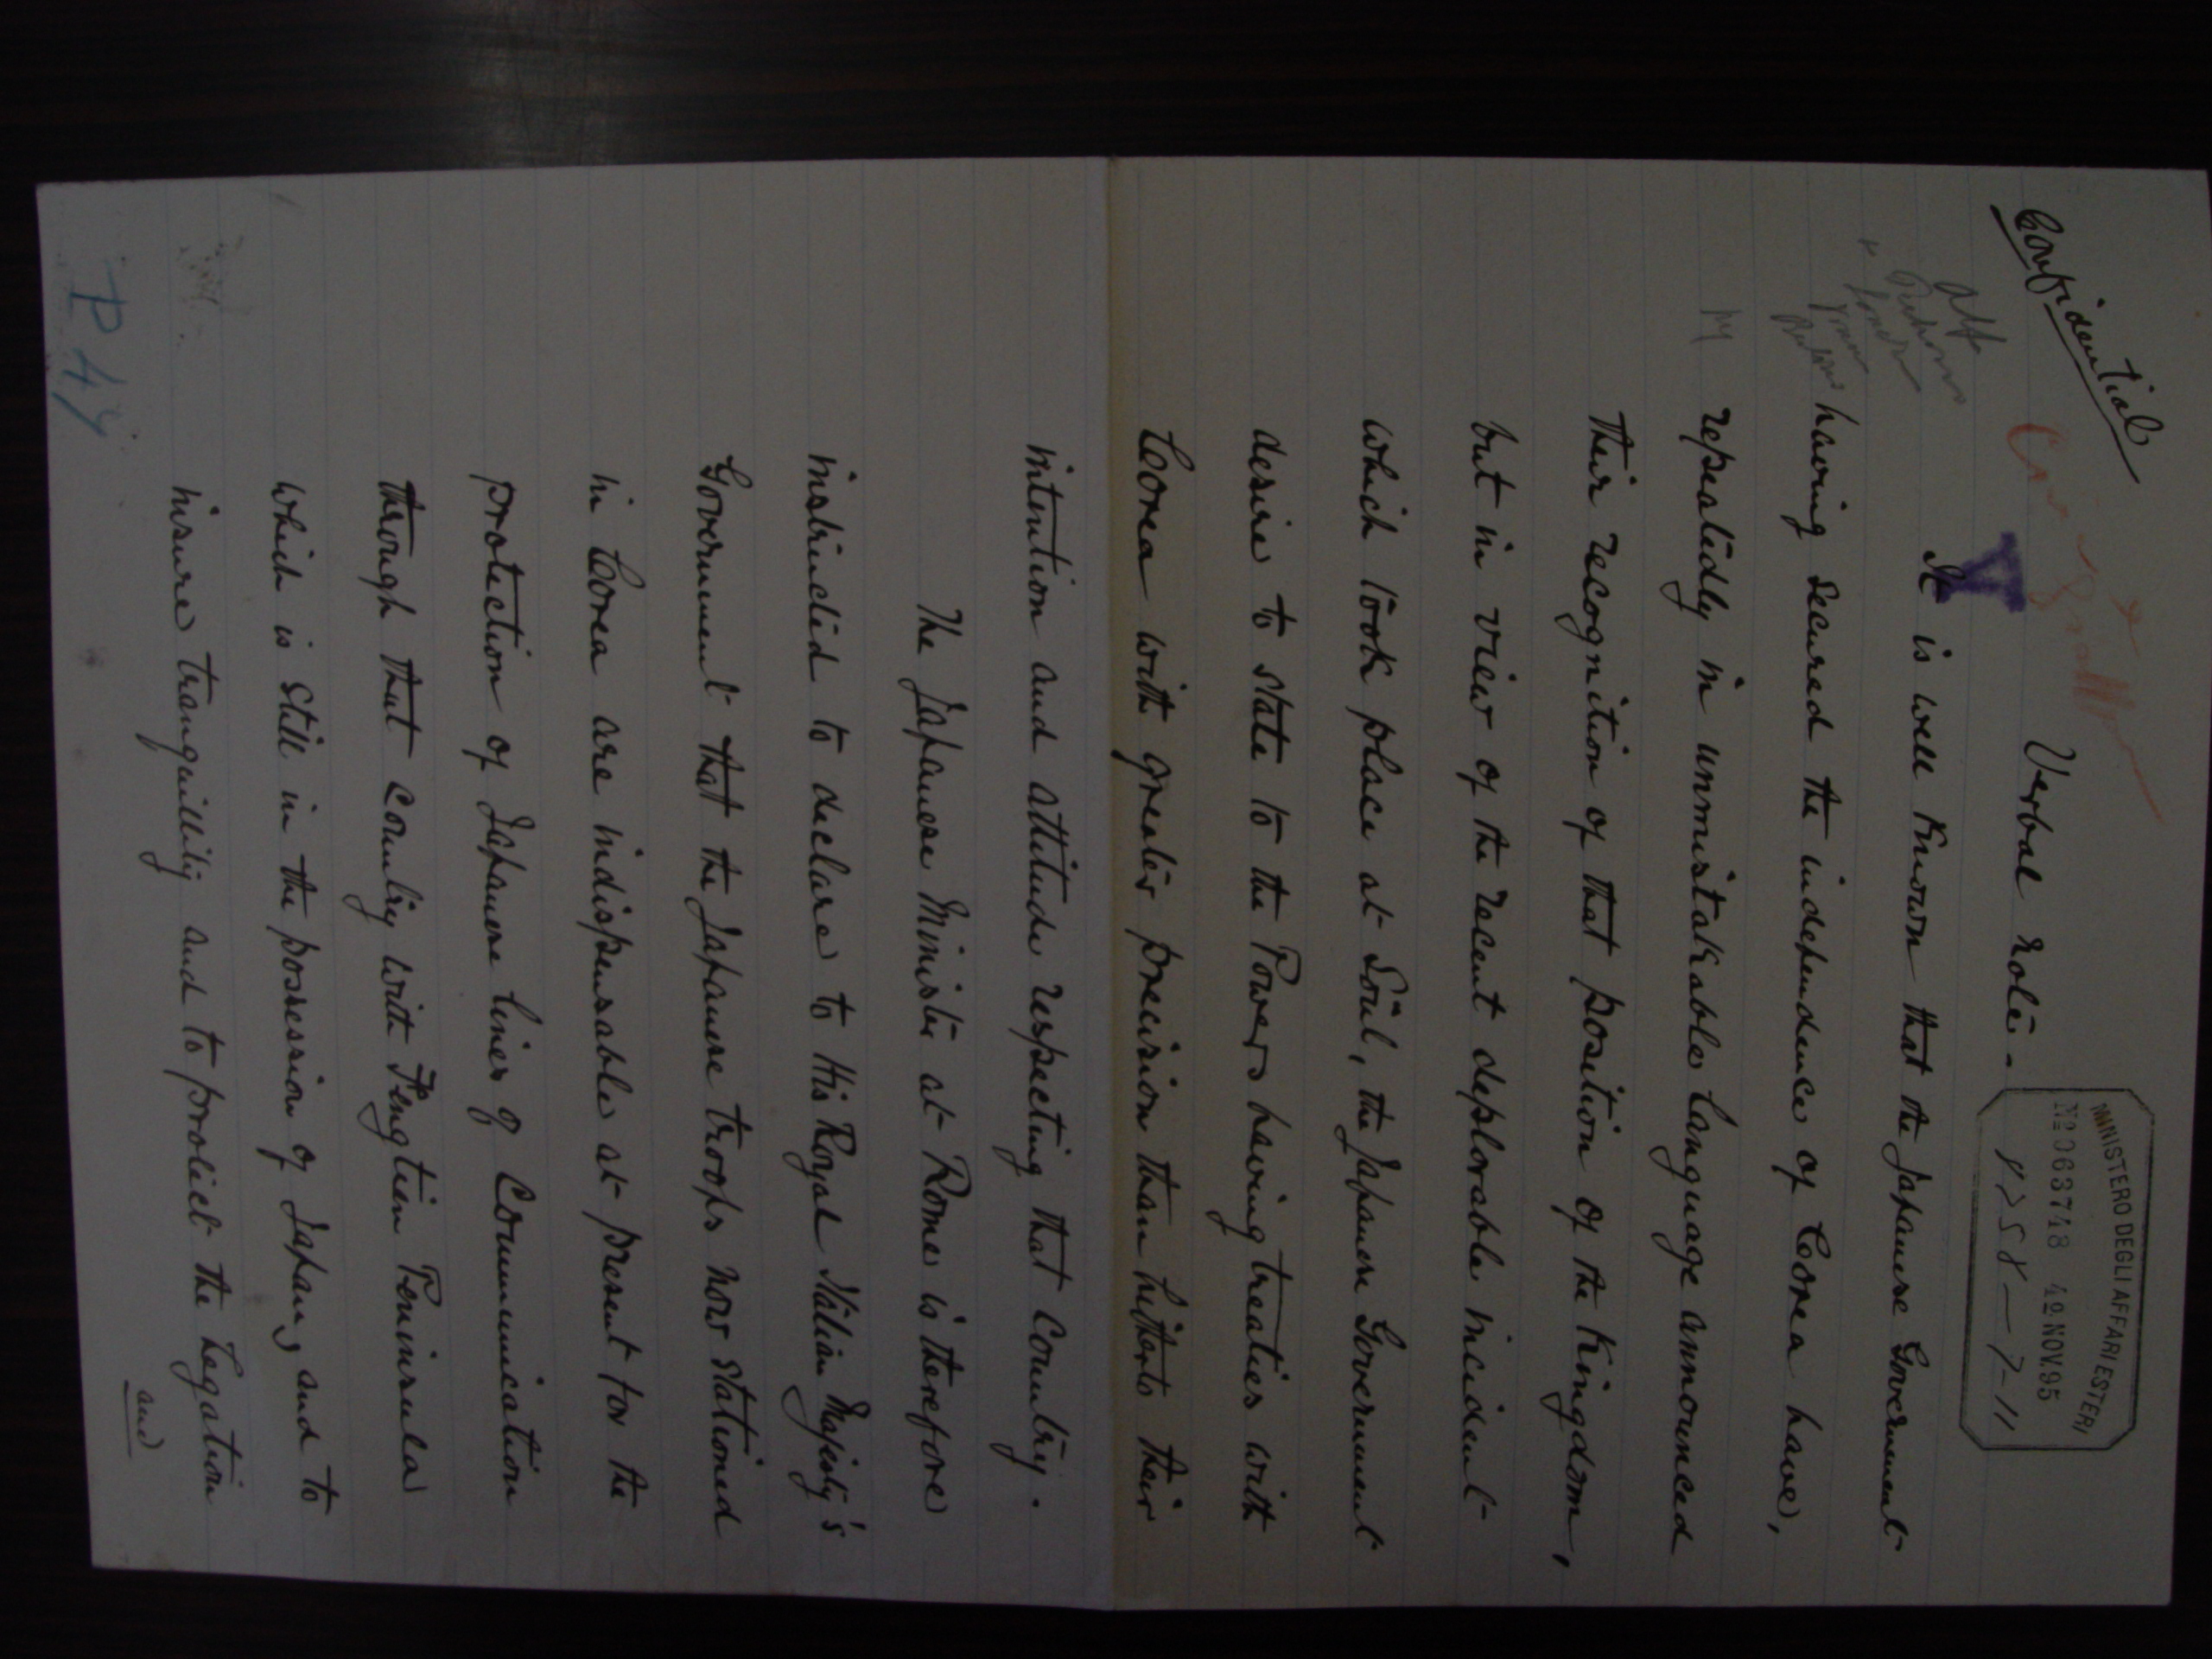 Confidential
Verbal Note.
MINISTERO DEGLI AFFARI ESTERI
Nº 063748 4º NOV.95
It is well known that the Japanese Government
having secured the independence of Corea have,
repeatedly in unmistakable language announced
their recognition of that position of the Kingdom,
but in view of the recent deplorable incident
which took place at Söul, the Japanese Government
desire to state to the Powers having treaties with
Corea with greater precision than hitherto their
intention and attitude respecting that country.
The Japanese Minister at Rome is therefore
instructed to declare to His Royal Italian Majesty's
Government that the Japanese troops now stationed
in Corea are indispensable at present for the
protection of Japanese lines of communication
through that country with Fengtien Peninsula
which is still in the possession of Japan, and to
insure tranquillity and to protect the Legation
and